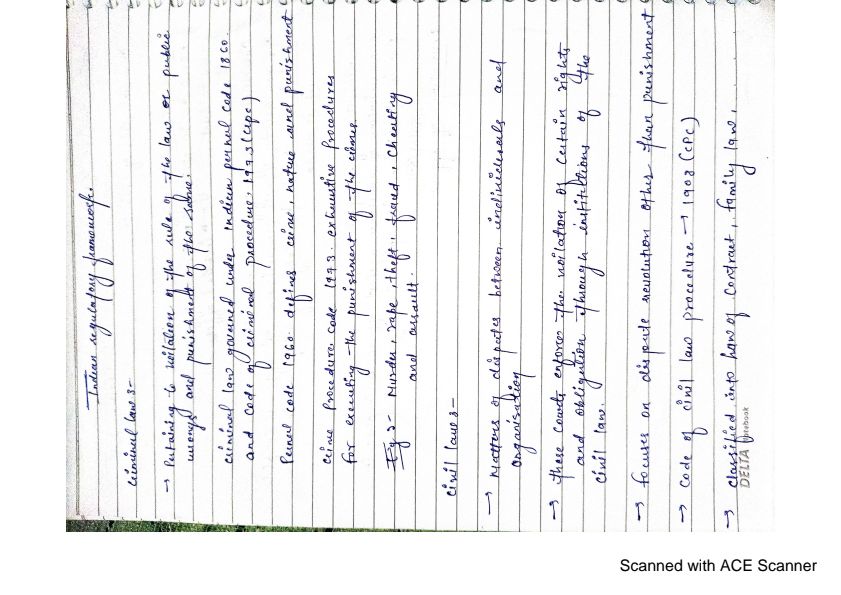 Indian regulatory framework.
criminal law :-
→ Pertaining to voilation of the rule of the law or public
wrongs and punishment of the same.
criminal law governed under Indian pernal code 1860.
and code of criminal procedure, 1973 (crpc)
Penal code 1960 defines crime, nature and punishment
crime Procedure code 1973. exhaustive procedures
for executing the punishment of the crimes.
Eg :- Murder, rape, theft, fraud, cheating
and assault.
civil law :-
→ Matters of disputes between individuals and
organisation
→ these courts enforces the voilation of certain rights
and obligation through institutions of the
civil law.
→ focuses on dispute resolution other than punishment
→ code of civil law procedure → 1908 (CPC)
→ classified into law of contract, family law,
DELTA Notebook
Scanned with ACE Scanner